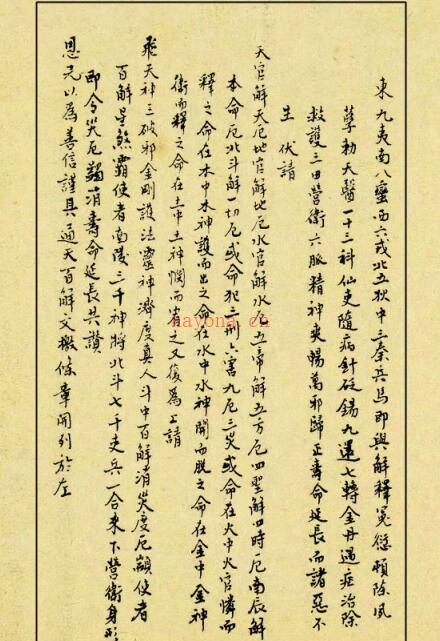 東九夷南八蠻西六戎北五狄中三秦兵馬即與解釋冤愆頓除夙
孽勅天醫一十三科仙吏隨病針砭錫九還七轉金丹遇症治除
救護三田營衛六脈精神爽暢萬邪歸正壽命延長而諸惡不
生 伏請
天官解天厄地官解地厄水官解水厄五帝解五方厄四聖解四時厄南辰解
本命厄北斗解一切厄或命犯三刑六害九厄三災或命在火中火官憐而
釋之命在木中木神護而出之命在水中水神開而脫之命在金中金神
衛而釋之命在土中土神憫而宥之又復為上請
飛天神王破邪金剛護法靈神濟度真人斗中百解消災度厄顓使者
百解星煞霸使者南陵三千神將北斗七千吏兵一合來下營衛身形
即令災厄蠲消壽命延長共讚
恩光以為善信謹具通天百解文檄條章開列於左
nayona.cn